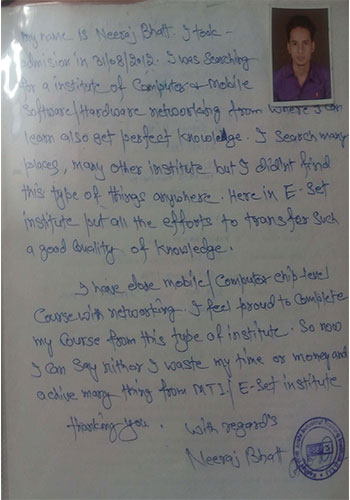 My name is Neeraj Bhatt. I took -
admision in 31/08/2015. I was searching
for a institute of Computer & Mobile
Software/Hardware networking from where I can
learn also get perfect knowledge. I search many
places, many other institute but I didn't find
this type of things anywhere. Here in E-Set
institute put all the efforts to transfer such
a good quality of knowledge.
I have done mobile/Computer chip level
Course with networking. I feel proud to complete
my Course from this type of institute. So now
I can say nithor I waste my time or money and
achive many thing from MTI/E-Set institute
thanking you.
with regards
Neeraj Bhatt